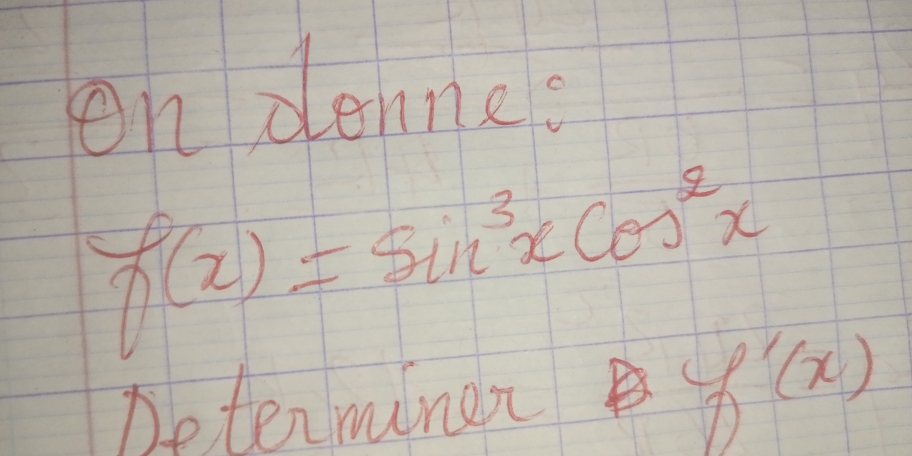 On donne:
f(x) = Sin³x Cos²x
Determiner f'(x)